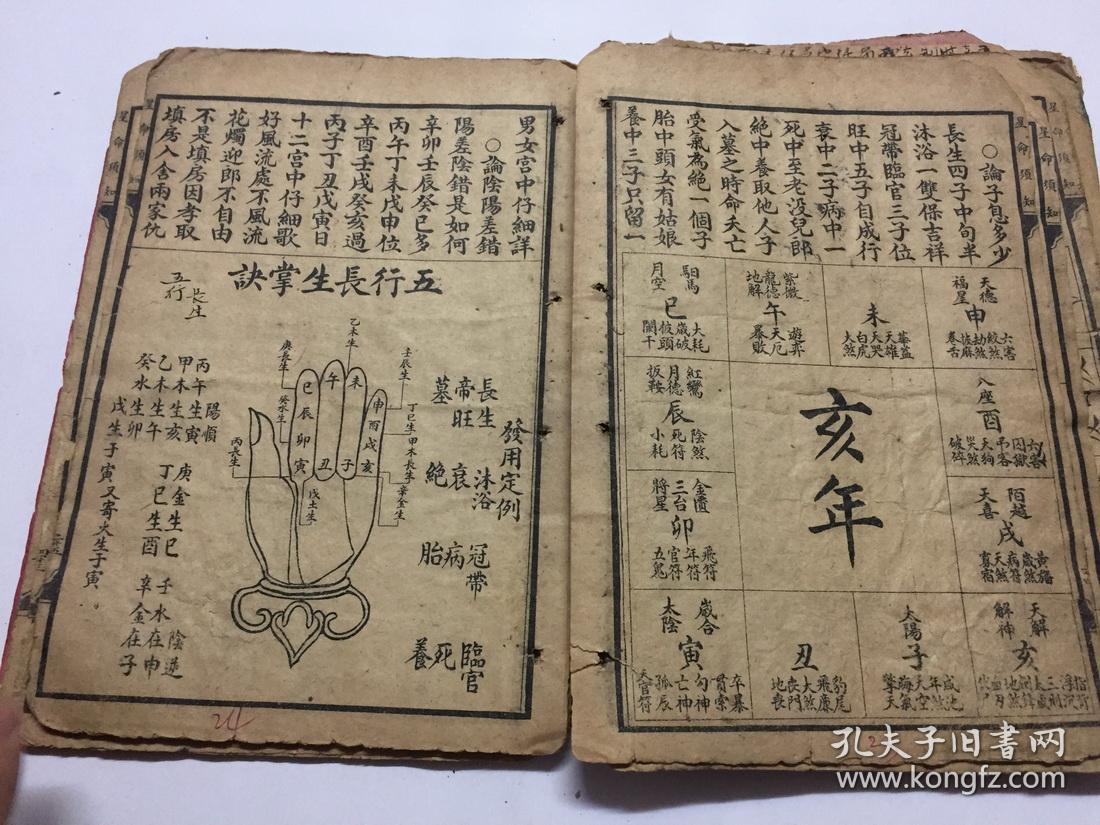 星命須知
○論子息多少
長生四子中旬半
沐浴一雙保吉祥
冠帶臨官三子位
旺中五子自成行
衰中二子病中一
死中至老没兒郎
絕中養取他人子
入墓之時命夭亡
受氣為絕一個子
胎中頭女有姑娘
養中三子只留一
亥年
天德
福星
申
六害
絞煞
劫煞
披麻
卷舌
未
華蓋
天雄
天哭
白虎
大煞
紫微
龍德
地解
午
遊弈
天厄
暴敗
馹馬
月空
巳
大耗
歲破
披頭
闌干
八座
酉
六害
囚獄
弔客
天狗
哭煞
破碎
紅鸞
月德
扳鞍
辰
陰煞
死符
小耗
陌越
天喜
戌
黃旛
歲煞
病符
天煞
寡宿
金匱
三台
將星
卯
飛符
年符
官符
五鬼
天解
解神
亥
指背
浮沉
太歲
太陽
子
咸池
年煞
天空
海氣
擎天
丑
豹尾
飛廉
大煞
喪門
地喪
歲合
太陰
寅
卒暴
貫索
勾神
亡神
孤辰
天官符
男女宮中仔細詳
○論陰陽差錯
陽差陰錯是如何
辛卯壬辰癸巳多
丙午丁未戊申位
辛酉壬戌癸亥過
丙子丁丑戊寅日
十二宮中仔細歌
好風流處不風流
花燭迎郎不自由
不是填房因孝取
填房入舍兩家仇
五行長生掌訣
發用定例
長生 沐浴 冠帶 臨官
帝旺 衰 病 死
墓 絕 胎 養
乙未生
壬辰生
庚長生
丁巳生
甲木長生
癸水生
辛金生
丙長生
戊土生
巳
午
未
申
辰
酉
卯
戌
寅
丑
子
亥
五行
長生
丙午生寅 陽順
甲木生亥
乙木生午
癸水生卯
庚金生巳
丁巳生酉
壬水在申 陰逆
辛金在子
戊生子寅又寄火生子寅
24
孔夫子旧书网
www.kongfz.com